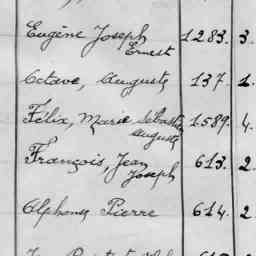 Eugène Joseph 1283. 3.
Ernest
Octave, Auguste 137. 1.
Félix, Marie Sébastien 1589. 4.
Auguste
François, Jean 613. 2.
Joseph
Alphonse Pierre 614. 2.